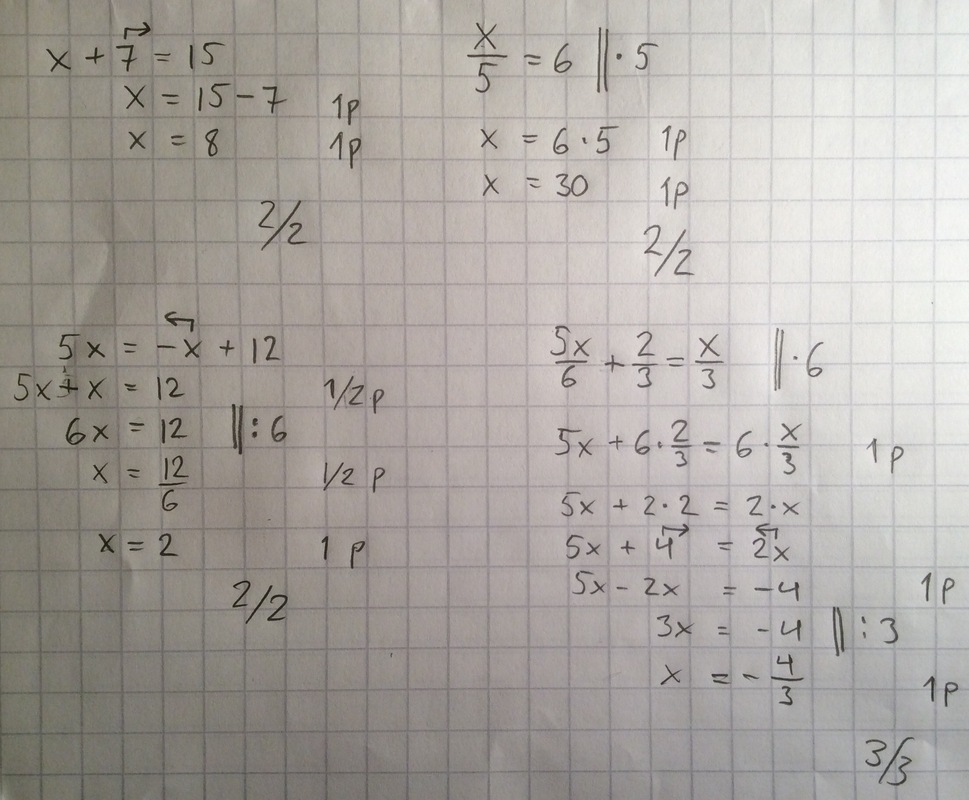 x + 7 = 15
x = 15 - 7 1p
x = 8 1p
2/2
x/5 = 6 ||· 5
x = 6 · 5 1p
x = 30 1p
2/2
5x = -x + 12
5x + x = 12 1/2 p
6x = 12 || : 6
x = 12/6 1/2 p
x = 2 1 p
2/2
5x/6 + 2/3 = x/3 || · 6
5x + 6 · 2/3 = 6 · x/3 1p
5x + 2 · 2 = 2 · x
5x + 4 = 2x
5x - 2x = -4 1p
3x = -4 || : 3
x = - 4/3 1p
3/3